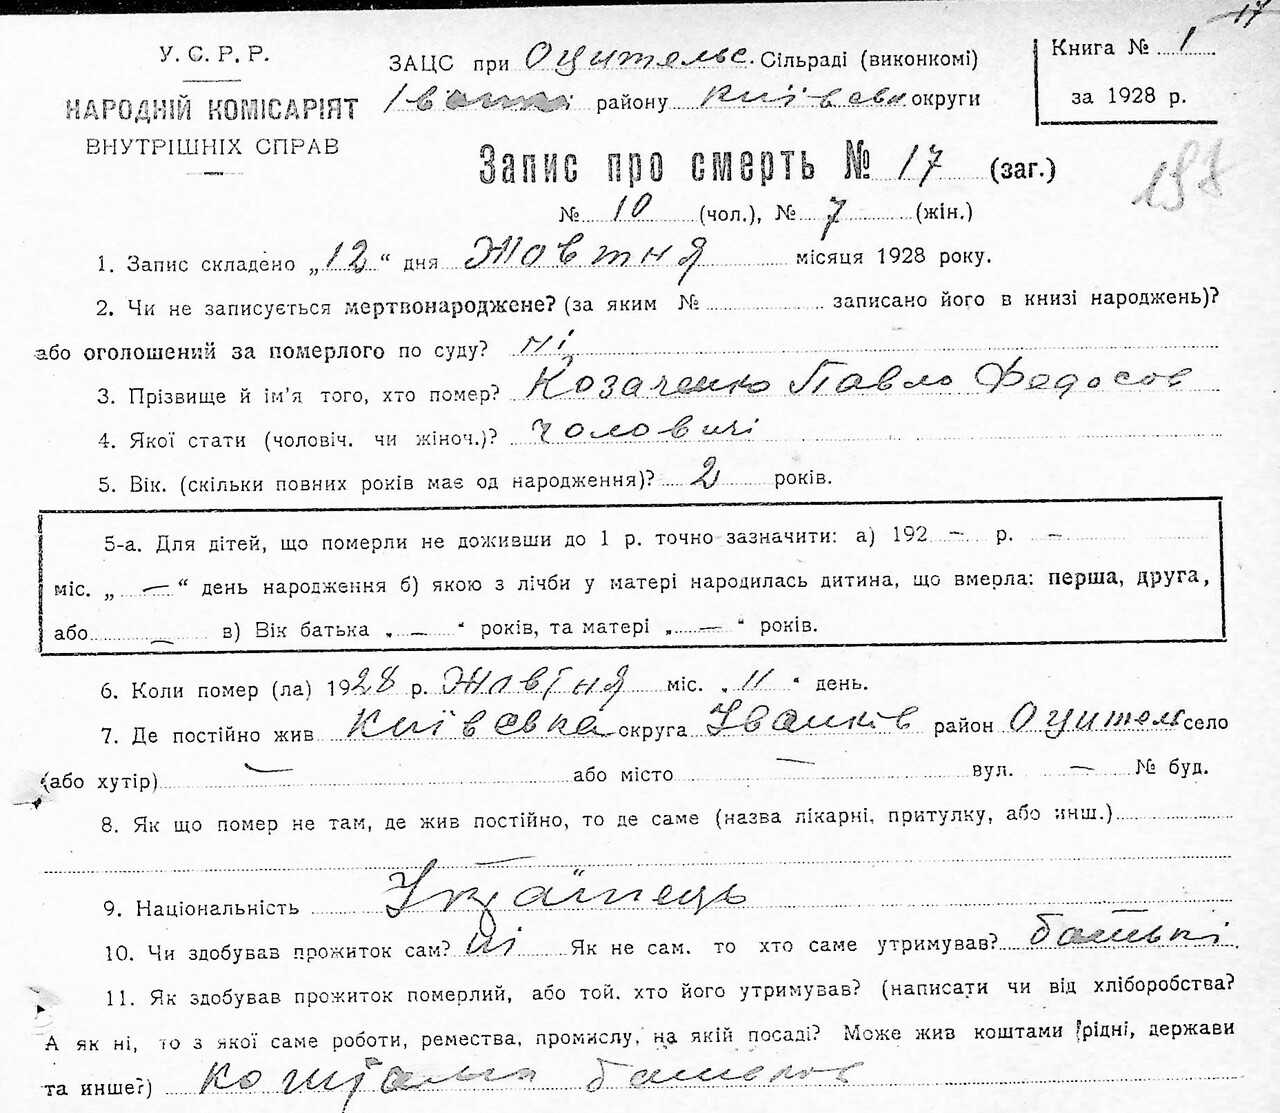 17
У.С.Р.Р.
НАРОДНІЙ КОМІСАРІЯТ
ВНУТРІШНІХ СПРАВ
ЗАЦС при Оцительс. Сільраді (виконкомі)
району Київська округи
Книга № 1
за 1928 р.
Запис про смерть № 17 (заг.)
№ 10 (чол.), № 7 (жін.)
197
1. Запис складено „12“ дня Жовтня місяця 1928 року.
2. Чи не записується мертвонароджене? (за яким № записано його в книзі народжень)?
або оголошений за померлого по суду? ні
3. Прізвище й ім'я того, хто помер? Козаченко Павло Федосов
4. Якої стати (чоловіч. чи жіноч.)? чоловичі
5. Вік. (скільки повних років має од народження)? 2 років.
5-а. Для дітей, що померли не доживши до 1 р. точно зазначити: а) 192 — р. —
міс. „ — “ день народження б) якою з лічби у матері народилась дитина, що вмерла: перша, друга,
або — в) Вік батька „ — “ років, та матері „ — “ років.
6. Коли помер (ла) 1928 р. Жовтня міс. „ 11 “ день.
7. Де постійно жив Київська округа Іванків район Оцител село
(або хутір) — або місто — вул. — № буд.
8. Як що помер не там, де жив постійно, то де саме (назва лікарні, притулку, або инш.)
9. Національність Українець
10. Чи здобував прожиток сам? ні Як не сам. то хто саме утримував? батькі
11. Як здобував прожиток померлий, або той. хто його утримував? (написати чи від хліборобства?
А як ні, то з якої саме роботи, ремества, промислу, на якій посаді? Може жив коштами рідні, держави
та инше?) коштами батьков